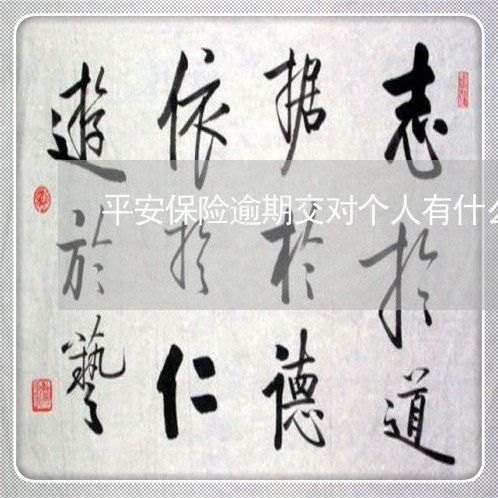 志於道
据於德
依於仁
遊於藝
平安保险逾期交对个人有什么